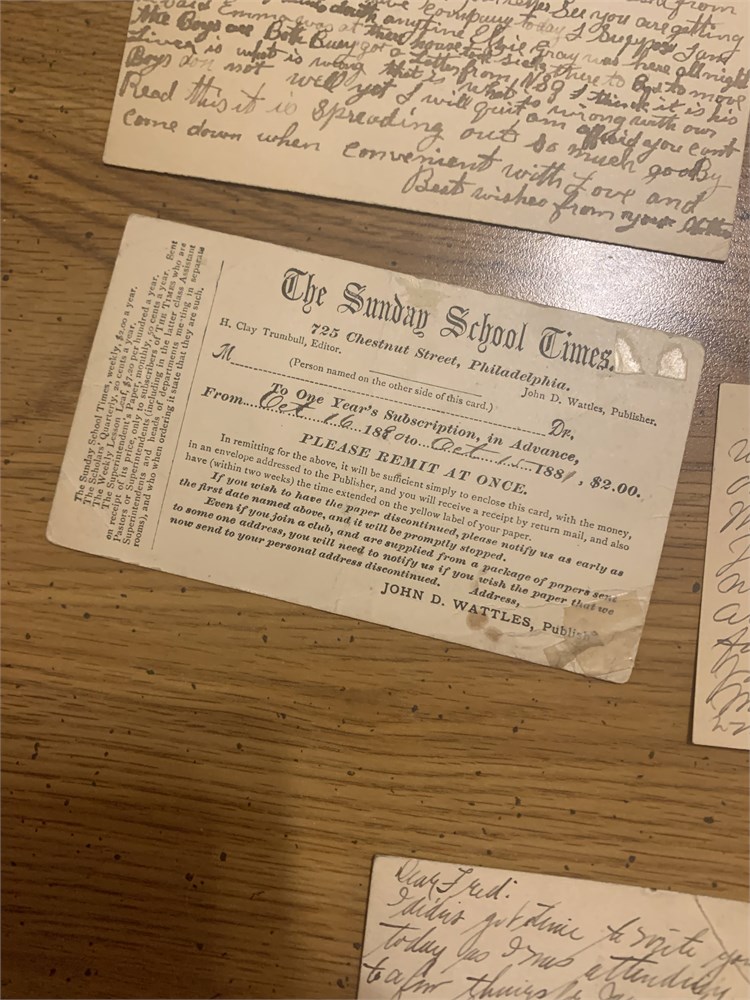 See you are getting
company today I suppose I am
said Emma was at their house sick
The Boys are Both Busy got a Letter from
Liver is what is wrong that is what is wrong with our
Boys don not well yet I will quit am affraid you cant
Read this it is spreading out so much good By
come down when convenient with Love and
Best wishes from your
The Sunday School Times, weekly, $2.00 a year.
The Scholars' Quarterly, 20 cents a year.
The Weekly Lesson Leaf, $7.20 per hundred a year.
The Superintendent's Paper, monthly, 50 cents a year. Sent
on receipt of its price, only to subscribers of THE TIMES who are
Pastors or Superintendents (including in the latter class Assistant
Superintendents and heads of departments meeting in separate
rooms), and who when ordering it state that they are such.
The Sunday School Times.
725 Chestnut Street, Philadelphia.
H. Clay Trumbull, Editor.
John D. Wattles, Publisher.
M
(Person named on the other side of this card.)
Dr.
To One Year's Subscription, in Advance,
From Oct 16 1880 to Oct 1 1881, $2.00.
PLEASE REMIT AT ONCE.
In remitting for the above, it will be sufficient simply to enclose this card, with the money,
in an envelope addressed to the Publisher, and you will receive a receipt by return mail, and also
have (within two weeks) the time extended on the yellow label of your paper.
If you wish to have the paper discontinued, please notify us as early as
the first date named above, and it will be promptly stopped.
Even if you join a club, and are supplied from a package of papers sent
to some one address, you will need to notify us if you wish the paper that we
now send to your personal address discontinued.
Address,
JOHN D. WATTLES, Publish
Dear Fred:
I didn't get time to write you
today as I was attending
to a few things